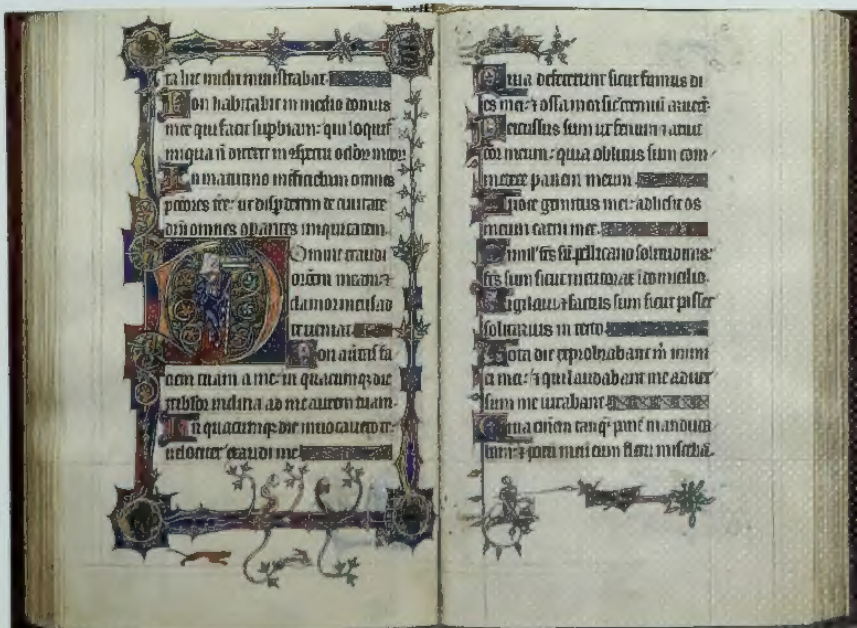 ta hic michi ministrabat
Non habitabit in medio domus
mee qui facit supbiam: qui loquit᷑
iniqua ñ direxit in ɔspectu oclōꝝ meoꝝ
In matutino int̄ficiebam omnes
pctōres tr̄e: ut disp̄derem de ciuitate
dn̄i omnes oꝑantes iniquitatem.
Domine exaudi
orōem meam: ⁊
clamor meus ad
te ueniat.
Non auertas fa
ciem tuam a me: in quacumqꝫ die
tribulor inclina ad me aurem tuam.
In quacumqꝫ die inuocauero te:
uelociter exaudi me
Quia defecerunt sicut fumus di
es mei: ⁊ ossa mea sic̄ cremiū arueᵲ
Percussus sum ut fenum ⁊ aruit
cor meum: quia oblitus sum com
medere panem meum.
A uoce gemitus mei: adhesit os
meum carni mee.
Simil᷑ fc̄s sū pellicano solitudinis:
fc̄s sum sicut nicticorax ī domicilio.
Uigilaui ⁊ factus sum sicut passer
solitarius in tecto.
Tota die exprobrabant m̄ inimi
ci mei: ⁊ qui laudabant me aduer
sum me iurabant.
Quia cinerem tanq̄ panē manduca
bam: ⁊ potū meū cum fletu miscebā.